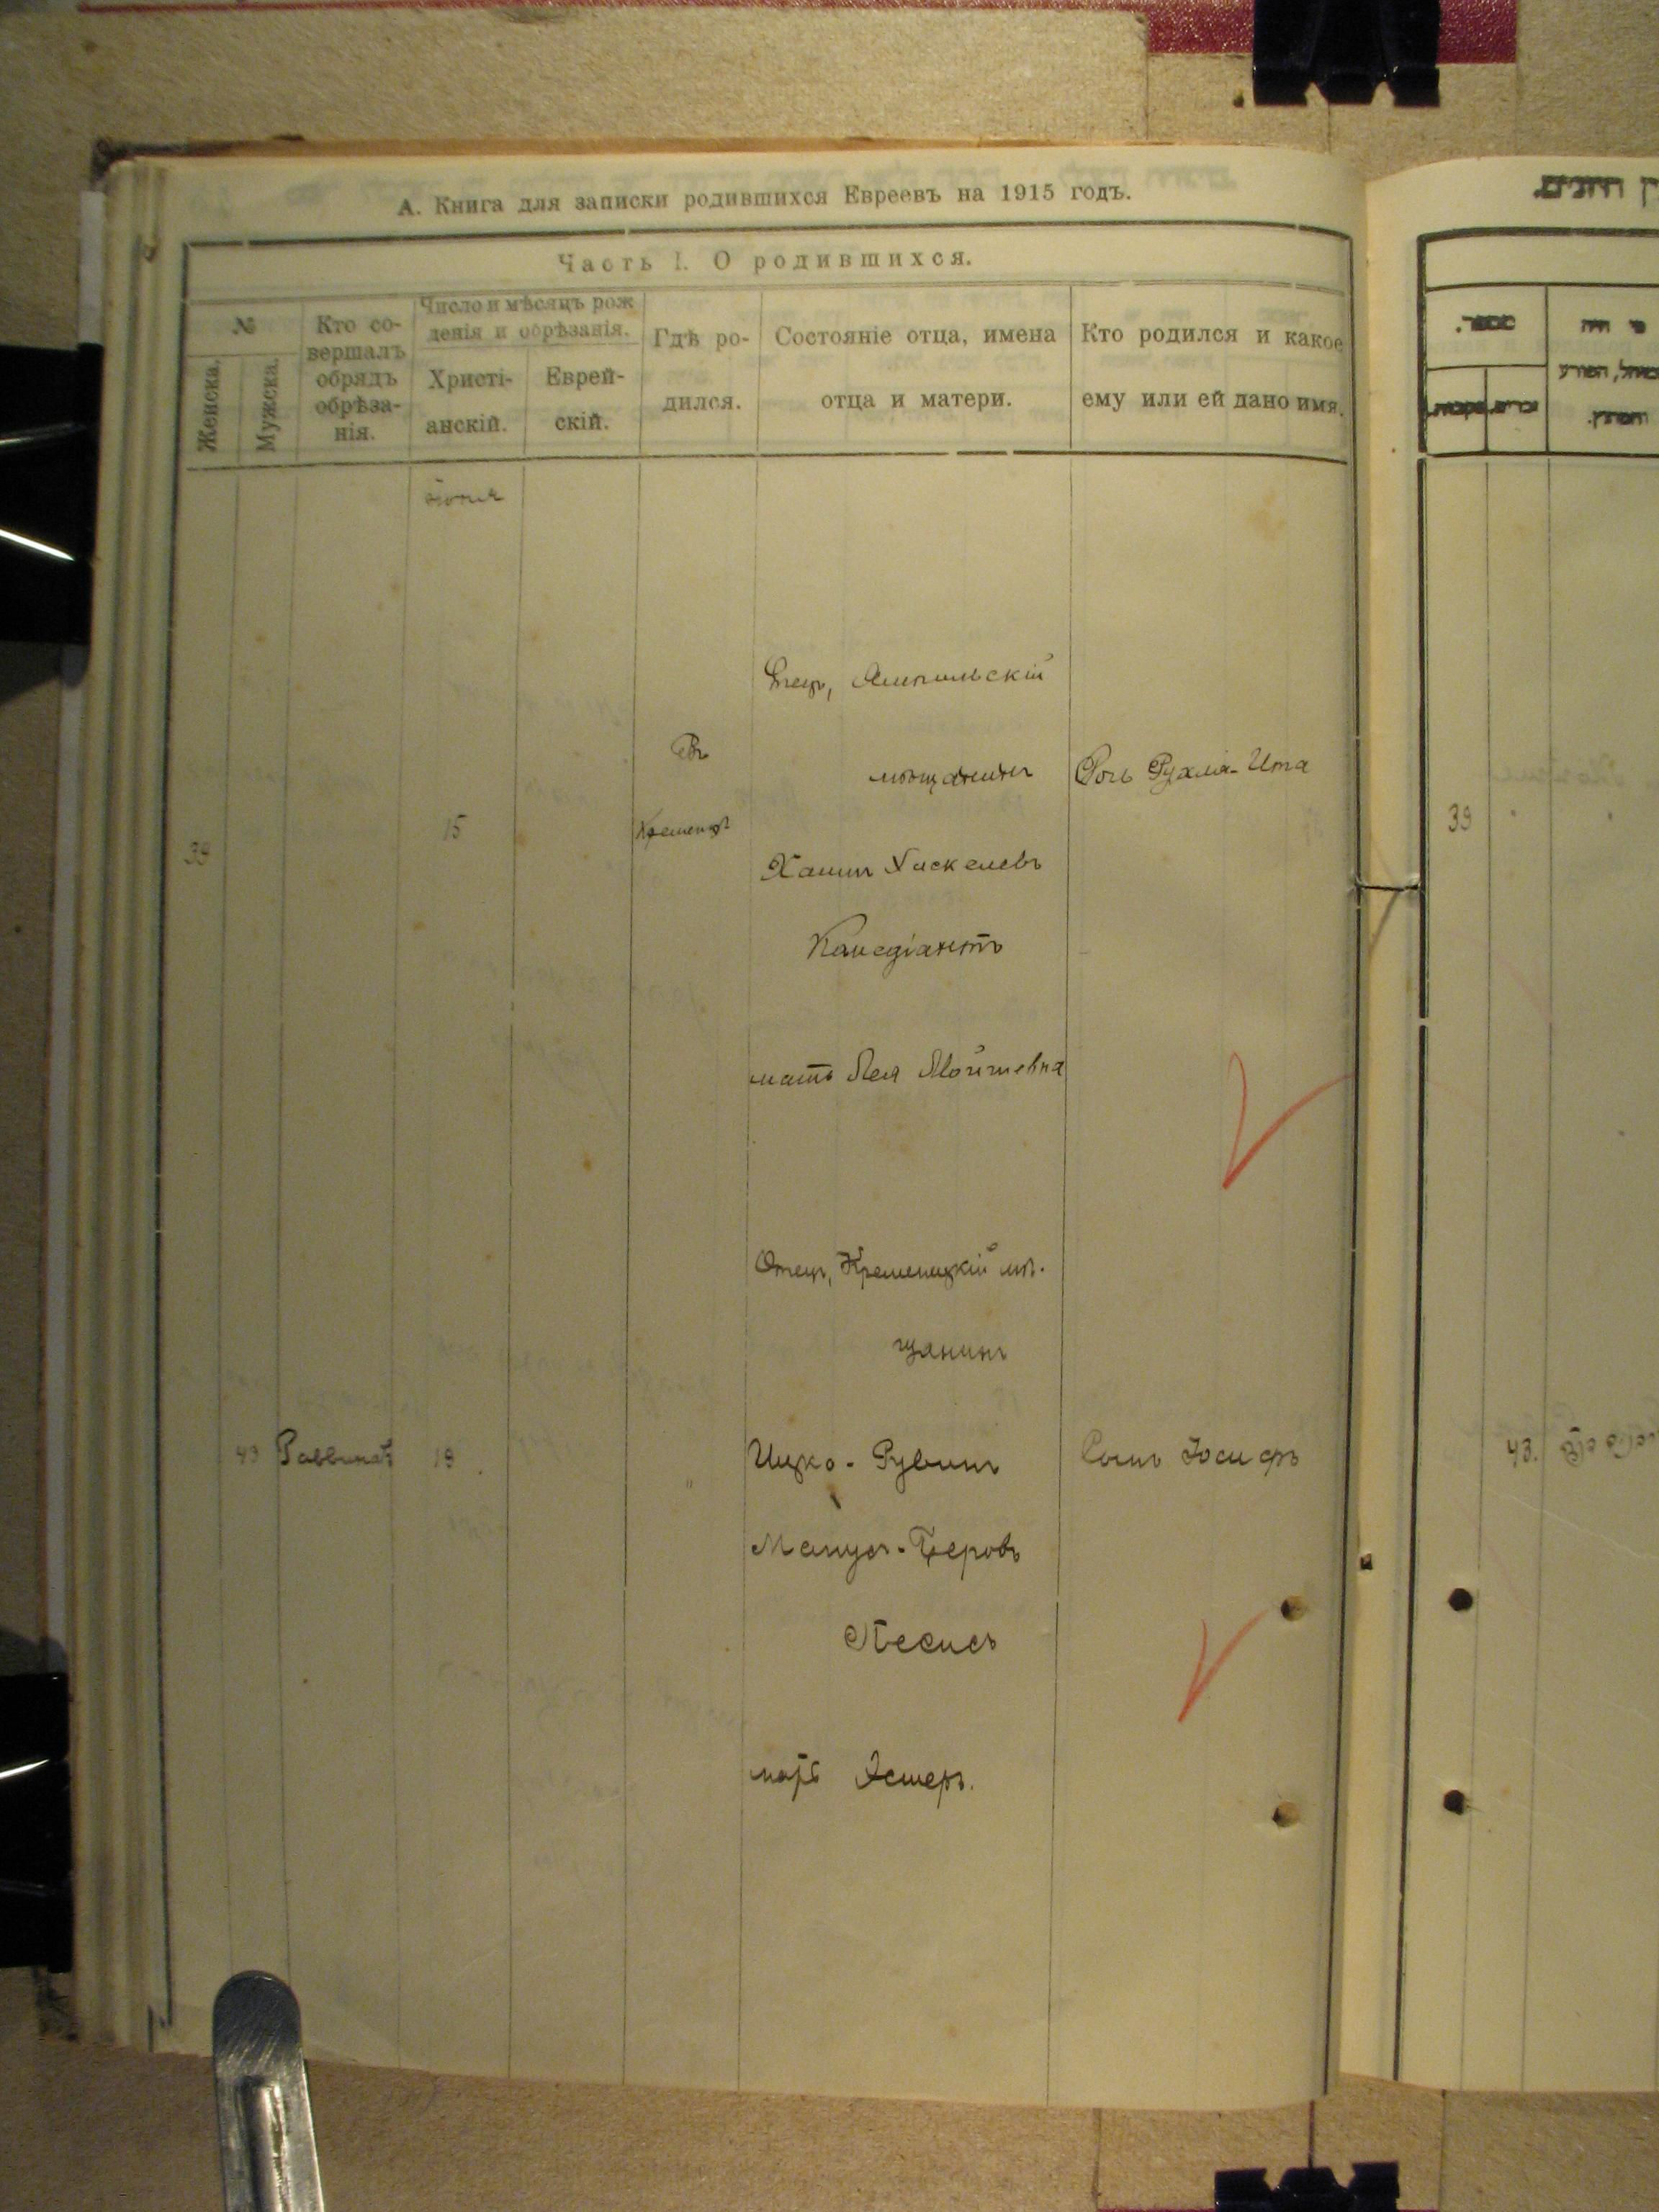 А. Книга для записки родившихся Евреевъ на 1915 годъ.
Часть I. О родившихся.
№
Женска.
Мужска.
Кто со-
вершалъ
обрядъ
обрѣза-
нія.
Число и мѣсяцъ рож
денія и обрѣзанія.
Христі-
анскій.
Еврей-
скій.
Гдѣ ро-
дился.
Состояніе отца, имена
отца и матери.
Кто родился и какое
ему или ей дано имя.
Іюня
39
15
Въ
Кременцѣ
Отецъ, Ямпольскій
мѣщанинъ
Хаимъ Хаскелевъ
Камедіантъ
мать Лея Мойшевна
Дочь Рухля-Ита
43
Раввинатъ
18
"
Отецъ, Кременецкій мѣ-
щанинъ
Ицко-Рувинъ
Манусъ-Беровъ
Песисъ
мать Эстеръ.
Сынъ Іосифъ
מספר.
זכרים.
נקבות.
מי היה
39
43.